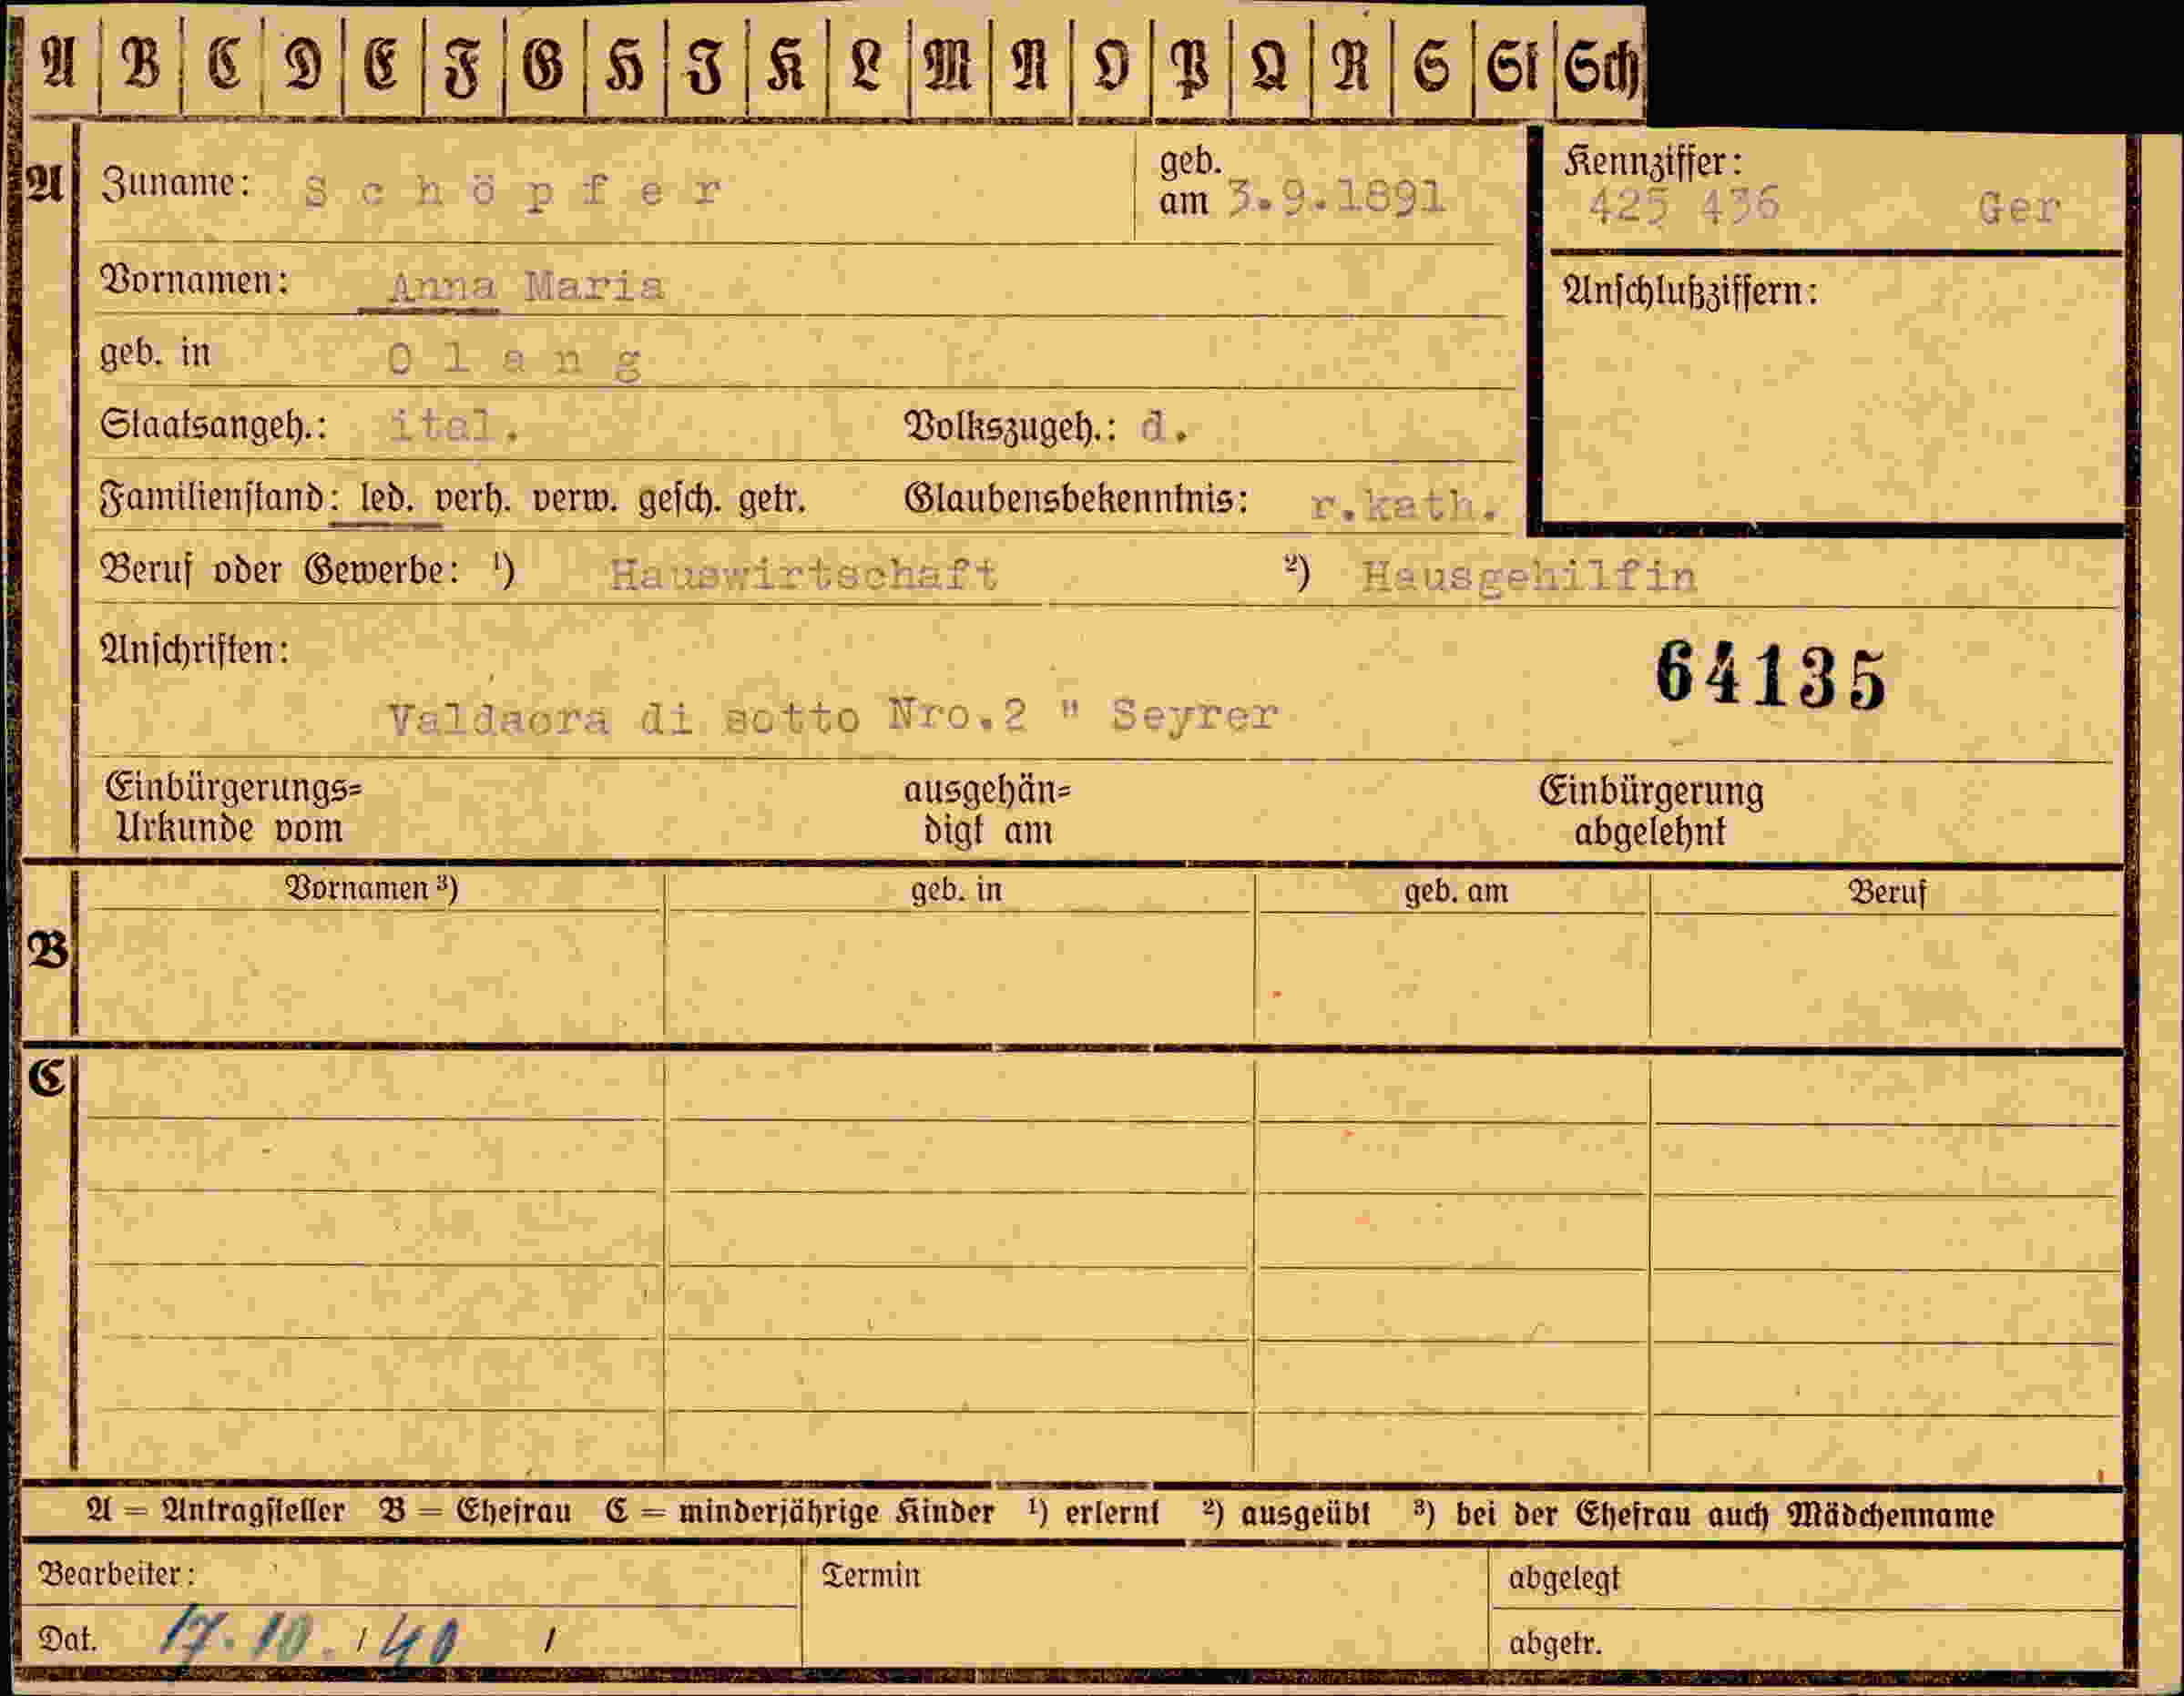 A B C D E F G H I K L M N O P Q R S St Sch
A Zuname: Schöpfer geb. am 3.9.1891 Kennziffer: 425 436 Ger
Vornamen: Anna Maria Anschlußziffern:
geb. in Olang
Staatsangeh.: ital. Volkszugeh.: d.
Familienstand: led. verh. verw. gesch. getr. Glaubensbekenntnis: r.kath.
Beruf oder Gewerbe: ¹) Hauswirtschaft ²) Hausgehilfin
Anschriften: 64135
Valdaora di sotto Nro.2 " Seyrer
Einbürgerungs= ausgehän= Einbürgerung
Urkunde vom digt am abgelehnt
Vornamen ³) geb. in geb. am Beruf
B
C
A = Antragsteller B = Ehefrau C = minderjährige Kinder ¹) erlernt ²) ausgeübt ³) bei der Ehefrau auch Mädchenname
Bearbeiter: Termin abgelegt
Dat. 17.10./40 / abgetr.